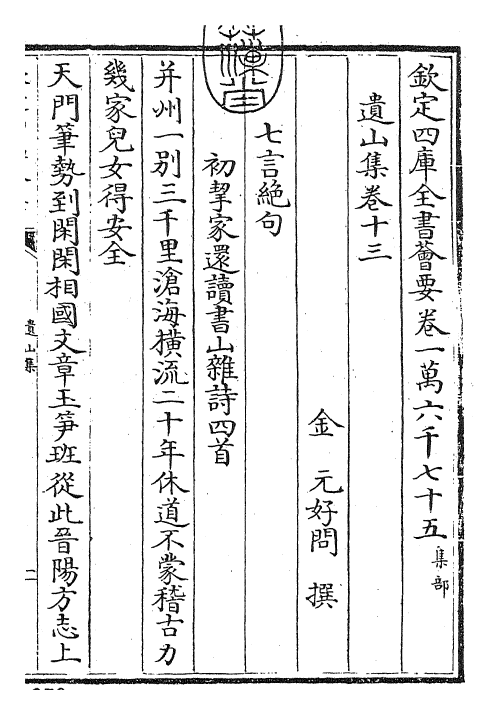 欽定四庫全書薈要卷一萬六千七十五 集部
遺山集卷十三
金 元好問 撰
七言絶句
初挈家還讀書山雜詩四首
并州一別三千里滄海橫流二十年休道不蒙稽古力
幾家兒女得安全
天門筆勢到閑閑相國文章玉笋班從此晉陽方志上
遺山集